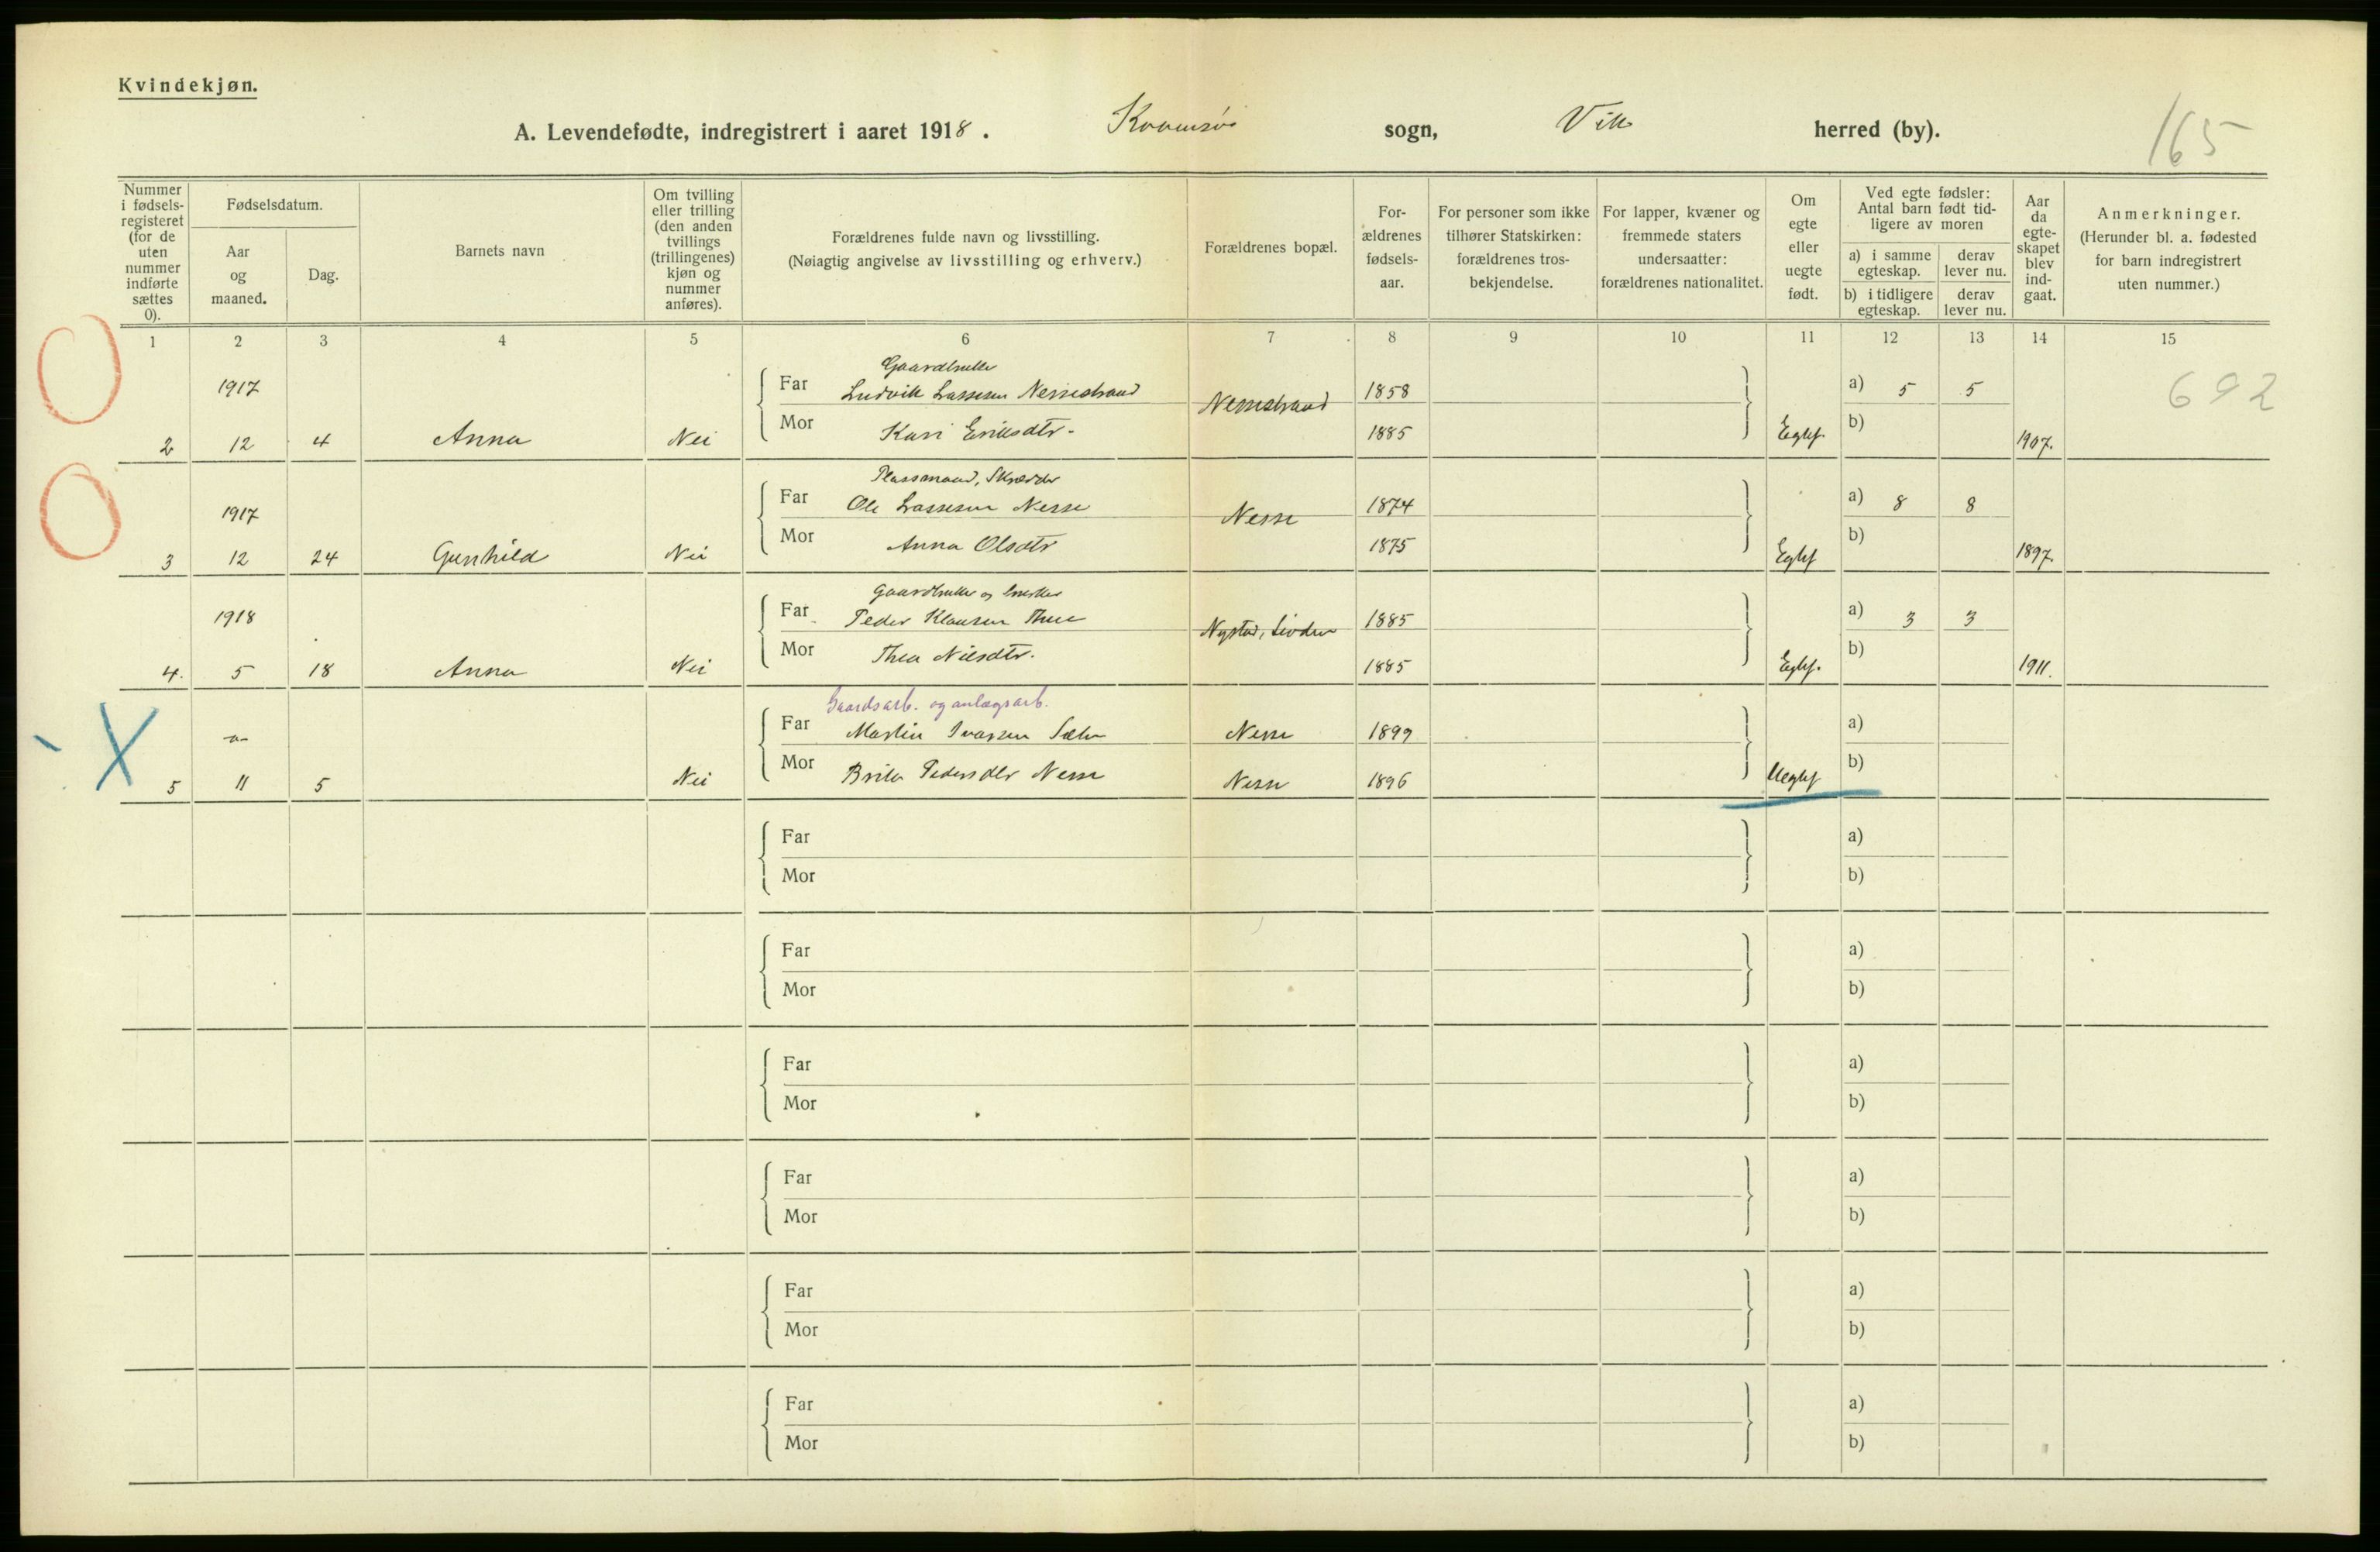 Kvindekjøn.
A. Levendefødte, indregistrert i aaret 1918. Kvamsøi sogn, Vik herred (by).
165
Nummer i fødsels-registeret (for de uten nummer indførte sættes 0).
Fødselsdatum.
Aar og maaned.
Dag.
Barnets navn
Om tvilling eller trilling (den anden tvillings (trillingenes) kjøn og nummer anføres).
Forældrenes fulde navn og livsstilling.
(Nøiagtig angivelse av livsstilling og erhverv.)
Forældrenes bopæl.
For-ældrenes fødsels-aar.
For personer som ikke tilhører Statskirken: forældrenes tros-bekjendelse.
For lapper, kvæner og fremmede staters undersaatter: forældrenes nationalitet.
Om egte eller uegte født.
Ved egte fødsler: Antal barn født tid-ligere av moren
a) i samme egteskap.
derav lever nu.
b) i tidligere egteskap.
derav lever nu.
Aar da egte-skapet blev ind-gaat.
Anmerkninger.
(Herunder bl. a. fødested for barn indregistrert uten nummer.)
1 2 3 4 5 6 7 8 9 10 11 12 13 14 15
Gaardbruker
1917 Far Ludvik Lassesen Nessestrand Nessestrand 1858 a) 5 5 692
2 12 4 Anna Nei Mor Kari Eriksdtr. 1885 Egtef. b) 1907.
Plassmand, Skrædder
1917 Far Ole Lassesen Nesse Nesse 1874 a) 8 8
3 12 24 Gunhild Nei Mor Anna Olsdtr 1875 Egtef b) 1897.
Gaardbruker og snekker
1918 Far Peder Klausen Thue Nystad, 1885 a) 3 3
4. 5 18 Anna Nei Mor Thea Nilsdtr. 1885 Egtef. b) 1911.
Gaardsarb. og anlægsarb.
-"- Far Martin Ivarsen Nesse 1899 a)
5 11 5 Nei Mor Brita Pedersdtr Nesse Nesse 1896 Uegtef b)
Far a)
Mor b)
Far a)
Mor b)
Far a)
Mor b)
Far a)
Mor b)
Far a)
Mor b)
Far a)
Mor b)